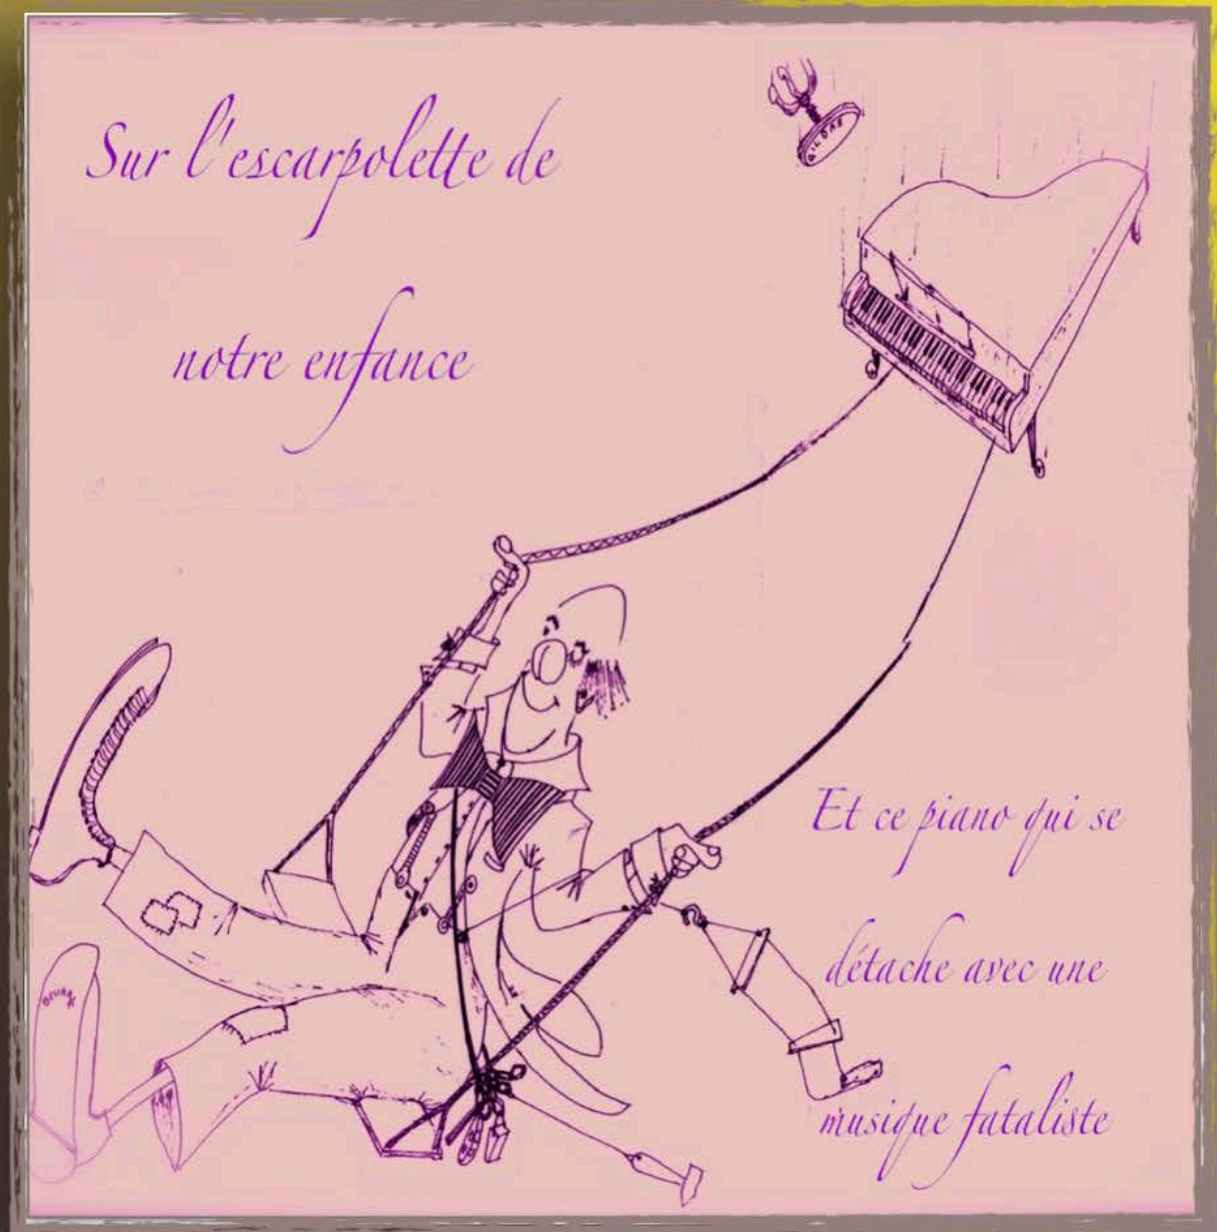 Sur l'escarpolette de
notre enfance
Et ce piano qui se
détache avec une
musique fataliste